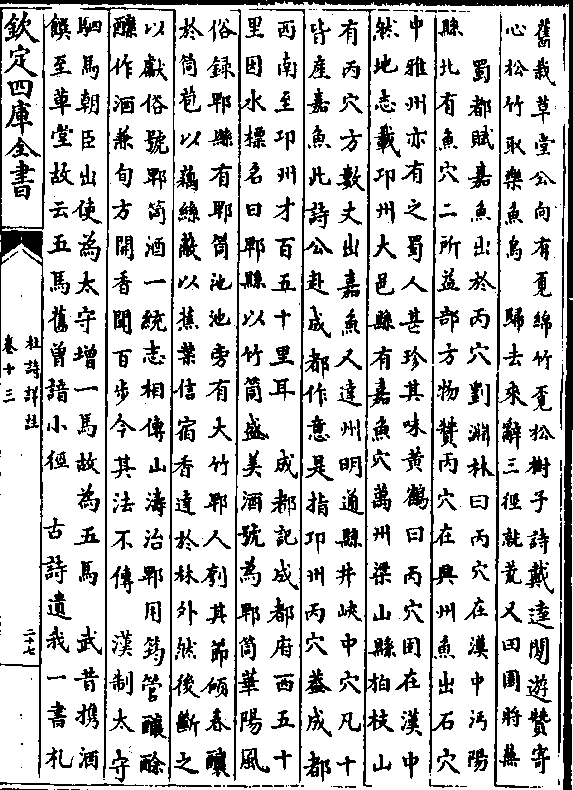 舊栽草堂公向有覔綿竹覔松樹子詩戴逵閒遊贊寄
心松竹取樂魚鳥　歸去來辭三徑就荒又田園將蕪
蜀都賦嘉魚出於丙穴劉淵林曰丙穴在漢中沔陽
縣北有魚穴二所益部方物贊丙穴在興州魚出石穴
中雅州亦有之蜀人甚珍其味黃鶴曰丙穴固在漢中
然地志載邛州大邑縣有嘉魚穴萬州梁山縣柏枝山
有丙穴方數丈出嘉魚又達州明通縣井峽中穴凡十
皆產嘉魚此詩公赴成都作意是指邛州丙穴蓋成都
西南至邛州才百五十里耳　成都記成都府西五十
里因水標名曰郫縣以竹筒盛美酒號為郫筒華陽風
俗録郫縣有郫筒池池旁有大竹郫人刳其節傾春釀
於筒苞以藕絲蔽以蕉葉信宿香達於林外然後斷之
以獻俗號郫筒酒一統志相傳山濤治郫用筠管釀酴
醾作酒兼旬方開香聞百步今其法不傳　漢制太守
駟馬朝臣出使為太守增一馬故為五馬　武昔携酒
饌至草堂故云五馬舊曾諳小徑　古詩遺我一書札
欽定四庫全書
杜詩詳註
卷十三
二十七